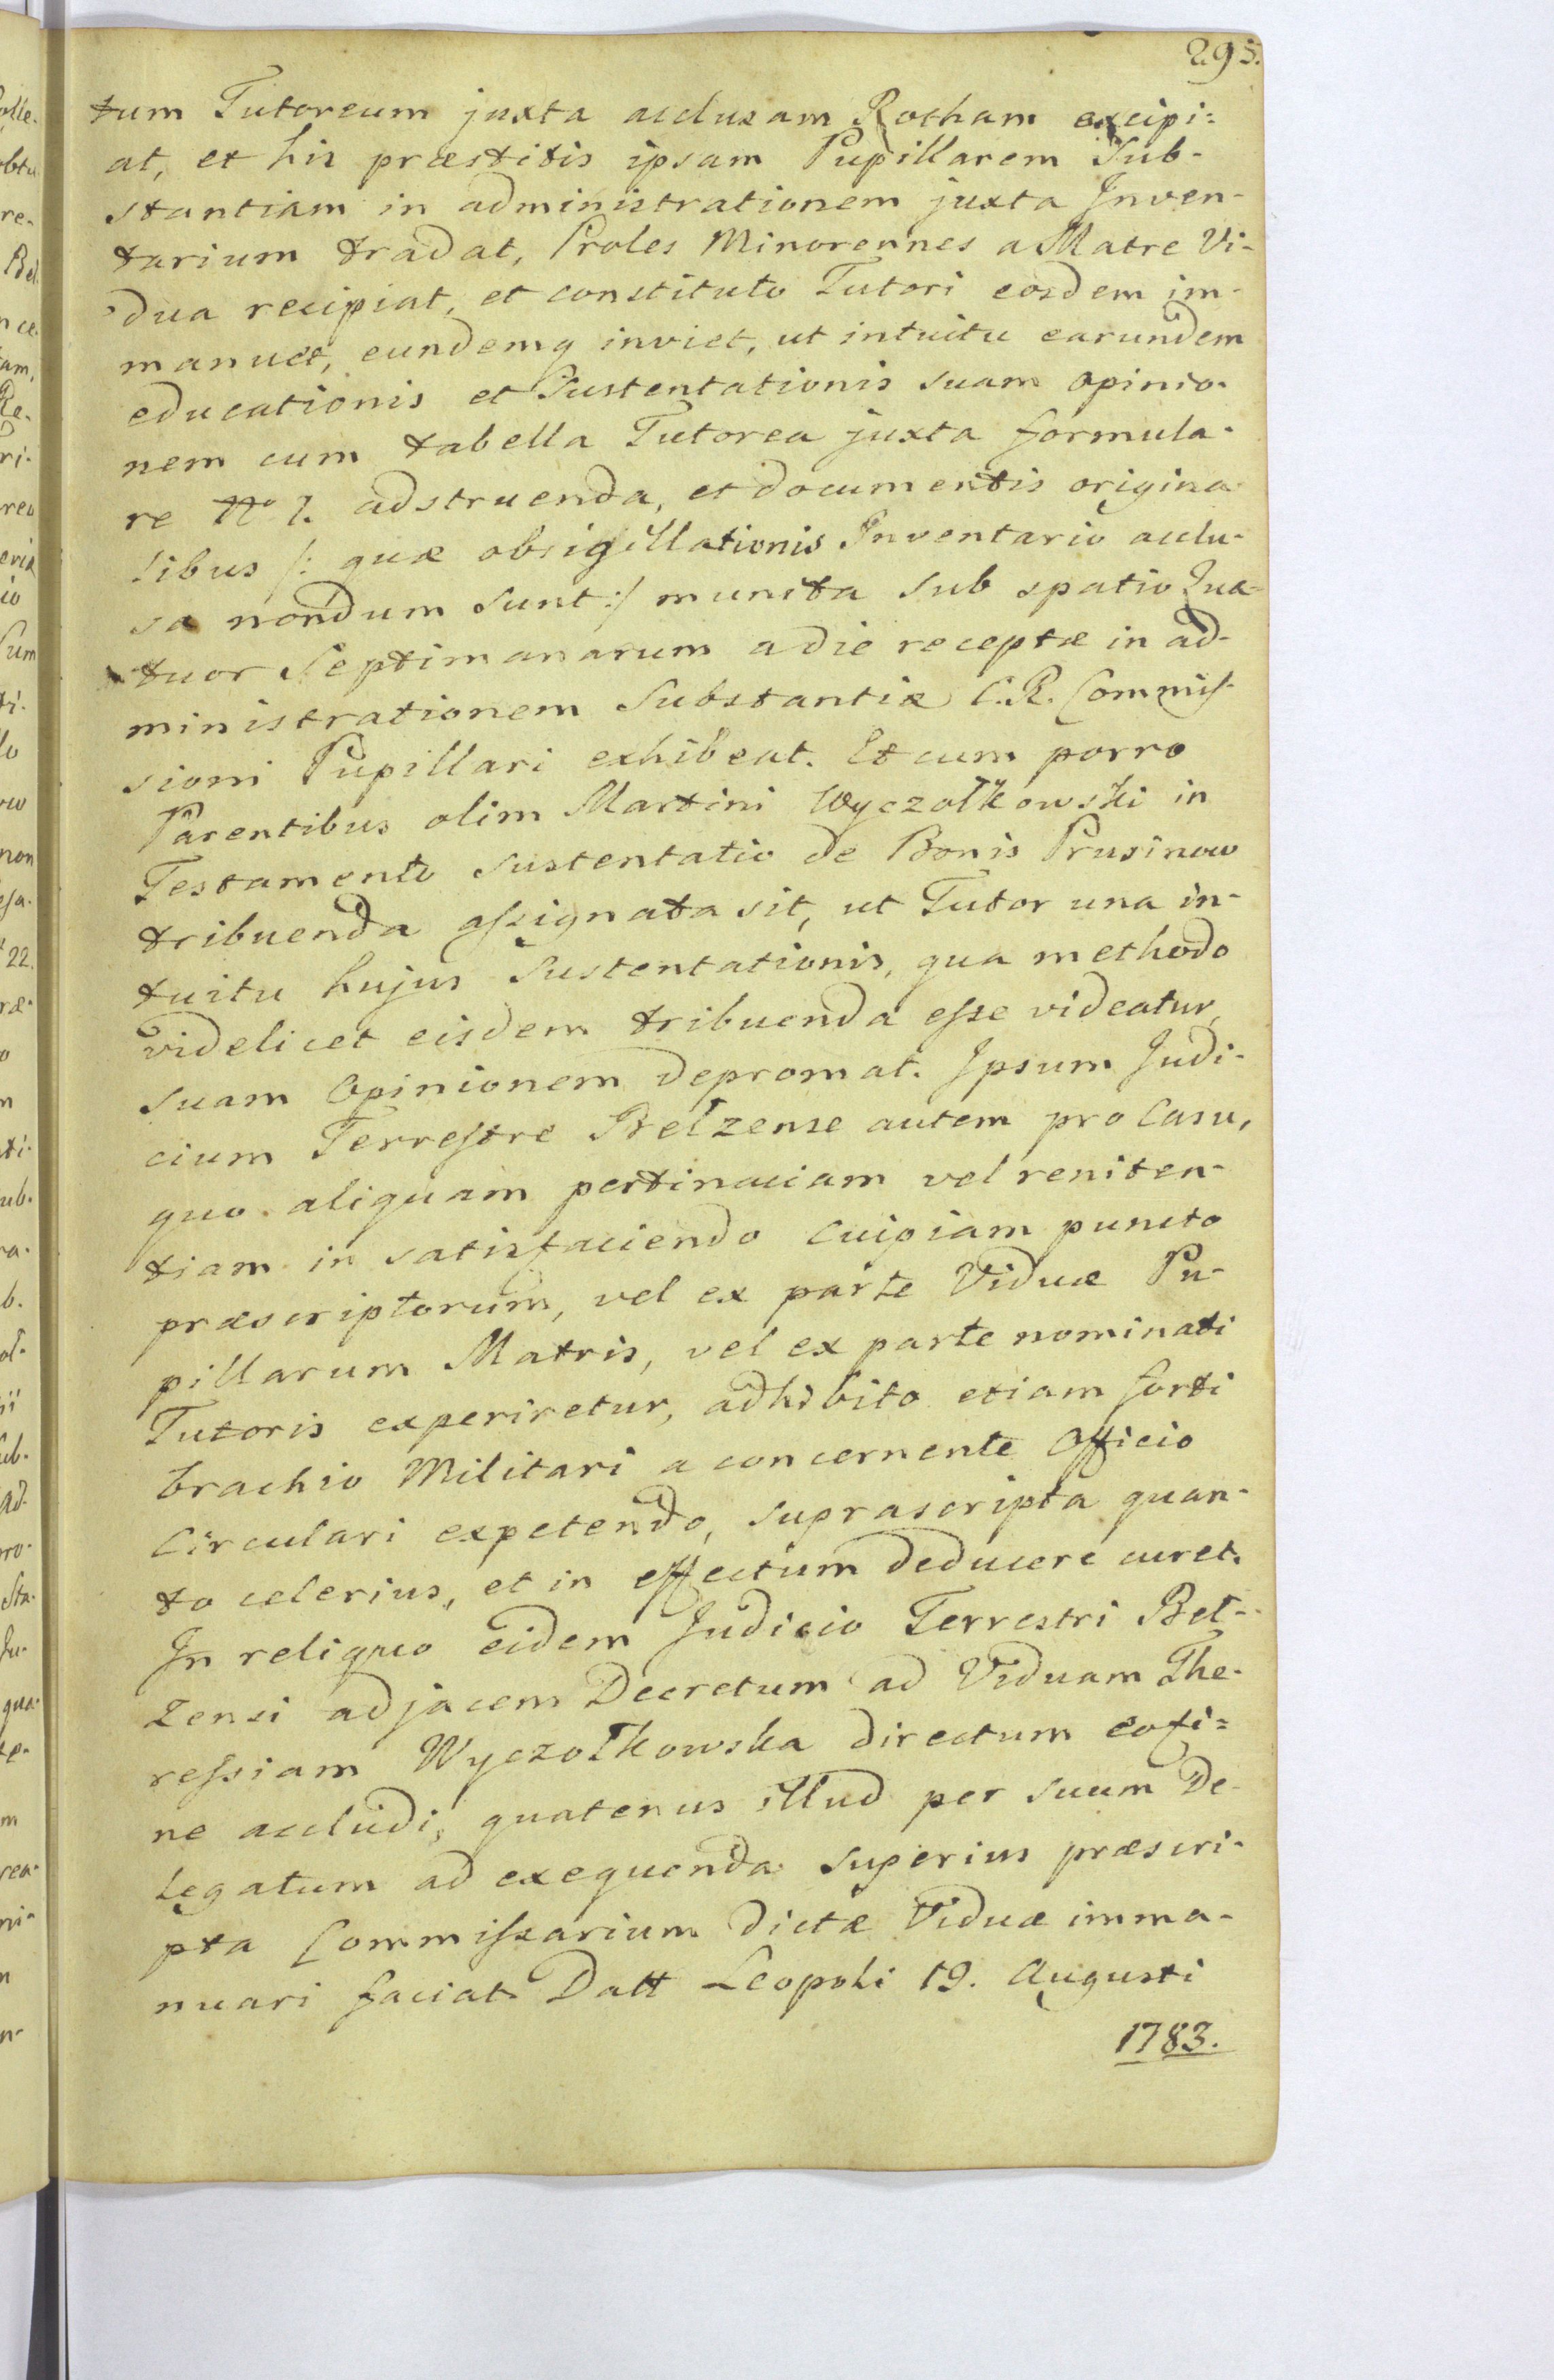 295.
tum Tutoreum juxta acclusam Rotham excipi=
at, et his præstitis ipsam Pupillarem Sub-
stantiam in administrationem juxta Inven-
tarium tradat, Proles Minorennes a Matre Vi-
dua recipiat, et constituto Tutori eosdem im-
manuet, eundemq inviet, ut intuitu earundem
educationis et Sustentationis suam opinio-
nem cum tabella Tutorea juxta formula-
re Nº 7. adstruenda, et documentis origina-
libus /: quæ obsigillationis Inventario acclu-
sa nondum sunt :/ munita sub spatio Qua-
tuor Septimanarum a die receptæ in ad-
ministrationem Substantiæ C. R. Commis-
sioni Pupillari exhibeat. Et cum porro
Parentibus olim Martini Wyczołkowski in
Testamento sustentatio de Bonis Prusinow
tribuenda assignata sit, ut Tutor una in-
tuitu hujus Sustentationis, qua methodo
videlicet eisdem tribuenda esse videatur,
suam Opinionem depromat. Ipsum Judi-
cium Terrestre Belzense autem pro Casu,
quo aliquam pertinaciam vel reniten-
tiam in satisfaciendo cuipiam puncto
præscriptorum, vel ex parte Viduæ Pu-
pillarum Matris, vel ex parte nominati
Tutoris experiretur, adhibito etiam forti
brachio Militari a concernente Officio
Circulari expetendo, suprascripta quan-
to celerius, et in effectum deducere curet.
In reliquo eidem Judicio Terrestri Bel-
zensi adjacem Decretum ad Viduam The-
ressiam Wyczołkowska directum eofi=
ne accludi, quatenus illud per suum De-
legatum ad exequenda superius præscri-
pta Commissarium dictæ Viduæ imma-
nuari faciat. Datt Leopoli 19. Augusti
1783.